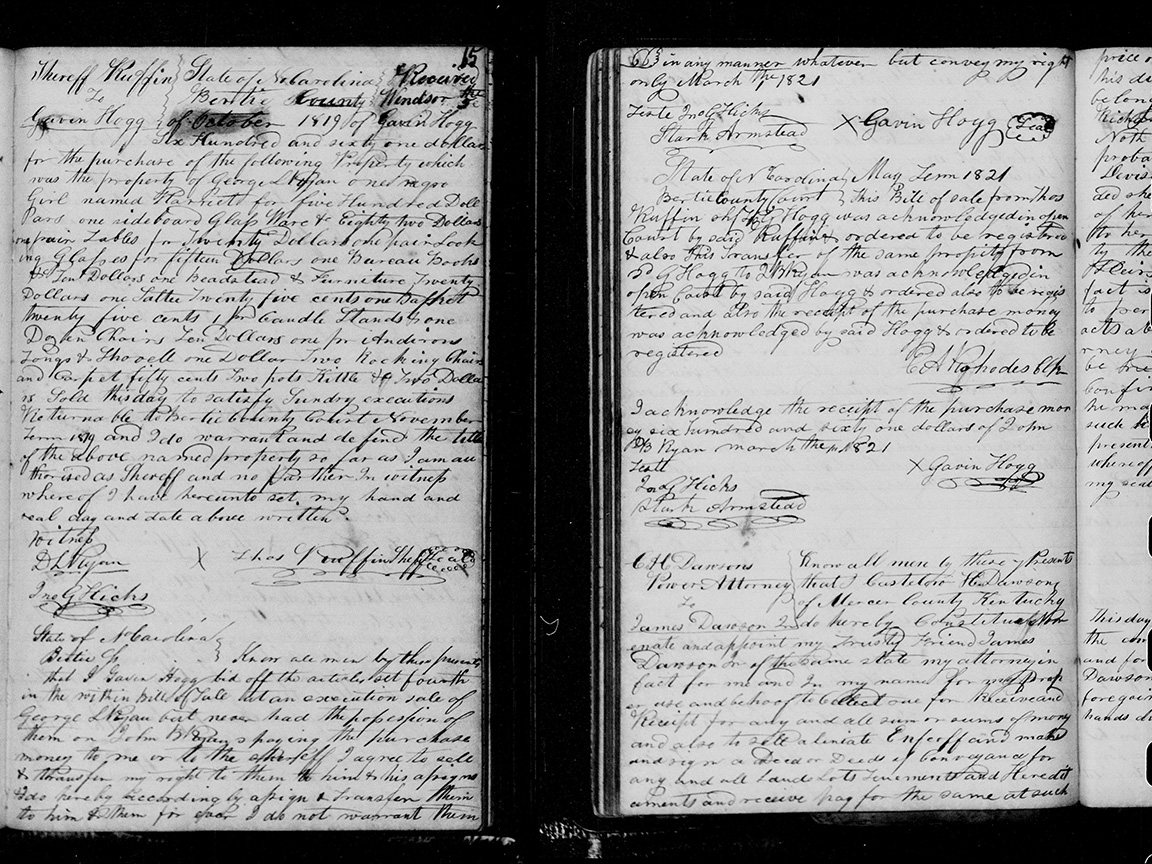 15
Shereff Ruffin } State of No Carolina } Received
To } Bertie County } Windsor the 5
Gavin Hogg } of October 1819 of Gavin Hogg
Six Hundred and sixty one dollars
for the purchase of the following Property which
was the property of George L Ryan one negro
Girl named Harriet for five Hundred Doll
Pars one sideboard Glass Ware &c Eighty two Dollars
one pair Tables for Twenty Dollars one pair Look
ing Glasses for fifteen Dollars one Bureau Books
&c Ten Dollars one Beadstead & Furniture Twenty
Dollars one Sattee Twenty five cents one Baskett
twenty five cents 1 pr Candle Stands & one
Dozen Chairs Ten Dollars one pr Andirons
Tongs & Shovell one Dollar Two Rocking Chairs
and Carpet fifty cents Two pots Kittle &c Two Dollars
is Sold this day to satisfy Sundry executions
Returnable to Bertie County Court November
Term 1819 and I do warrant and defend the title
of the above named property so far as I am au
thorised as Shereff and no farther In witness
whereof I have hereunto set my hand and
seal day and date above written
Witness
D L Ryan X Thos Ruffin Sheff Seal
Jno G Hicks
State of N Carolina }
Bertie Co } Know all men by these presents
that I Gaven Hogg bid off the articles set fourth
in the within Bill of Sale at an execution sale of
George L Ryan but never had the possession of
them on John B Ryan s paying the purchase
money to me or to the sheriff I agree to sell
& transfer my right to them to him & his assigns
& do hereby according by assign & Transfer them
to him & them for ever I do not warrant them
663 in any manner whatever but convey my right
only March the 1821
Teste Jno G Hicks
Stark Armstead X Gavin Hogg Seal
State of N Carolina } May Term 1821
Bertie County Court } This Bill of sale from Thos
Ruffin shff to G Hogg was acknowledged in open
Court by said Ruffin & ordered to be registered
& also this Transfer of the same property from
sd G Hogg to J B Ryan was acknowledged in
open Court by said Hogg & ordered also to be regis
tered and also the receipt of the purchase money
was acknowledged by said Hogg & ordered to be
registered
E A Rhodes Clk
I acknowledge the receipt of the purchase mon
ey six hundred and sixty one dollars of John
B Ryan march the 1821
Teste X Gavin Hogg
Jno G Hicks
Stark Armstead
C H Dawsons } Know all men by these Presents
Power Attorney } that I Castelow H Dawson
To } of Mercer County Kentucky
James Dawson Jr do hereby Constitute Nom
enate and appoint my Trusty Friend James
Dawson Jr of the same state my attorney in
fact for me and In my name for my Prop
er use and behoof to Collect sue for Receive and
Receipt for any and all sum or sums of money
and also to sell aleniate Enfeoff and make
and sign a deed or Deeds of Conveyance for
any and all Land Lots Tenements and Heredit
aments and receive pay for the same at such
price o
his di
belong
Hicks
Noth
proba
Davis
ded she
of her
to her
ty the
fact is
to per
acts a b
rney
be
confir
he ma
such
present
whereof
my seal
This day
the con
and for
Dawson
foregoin
hands di